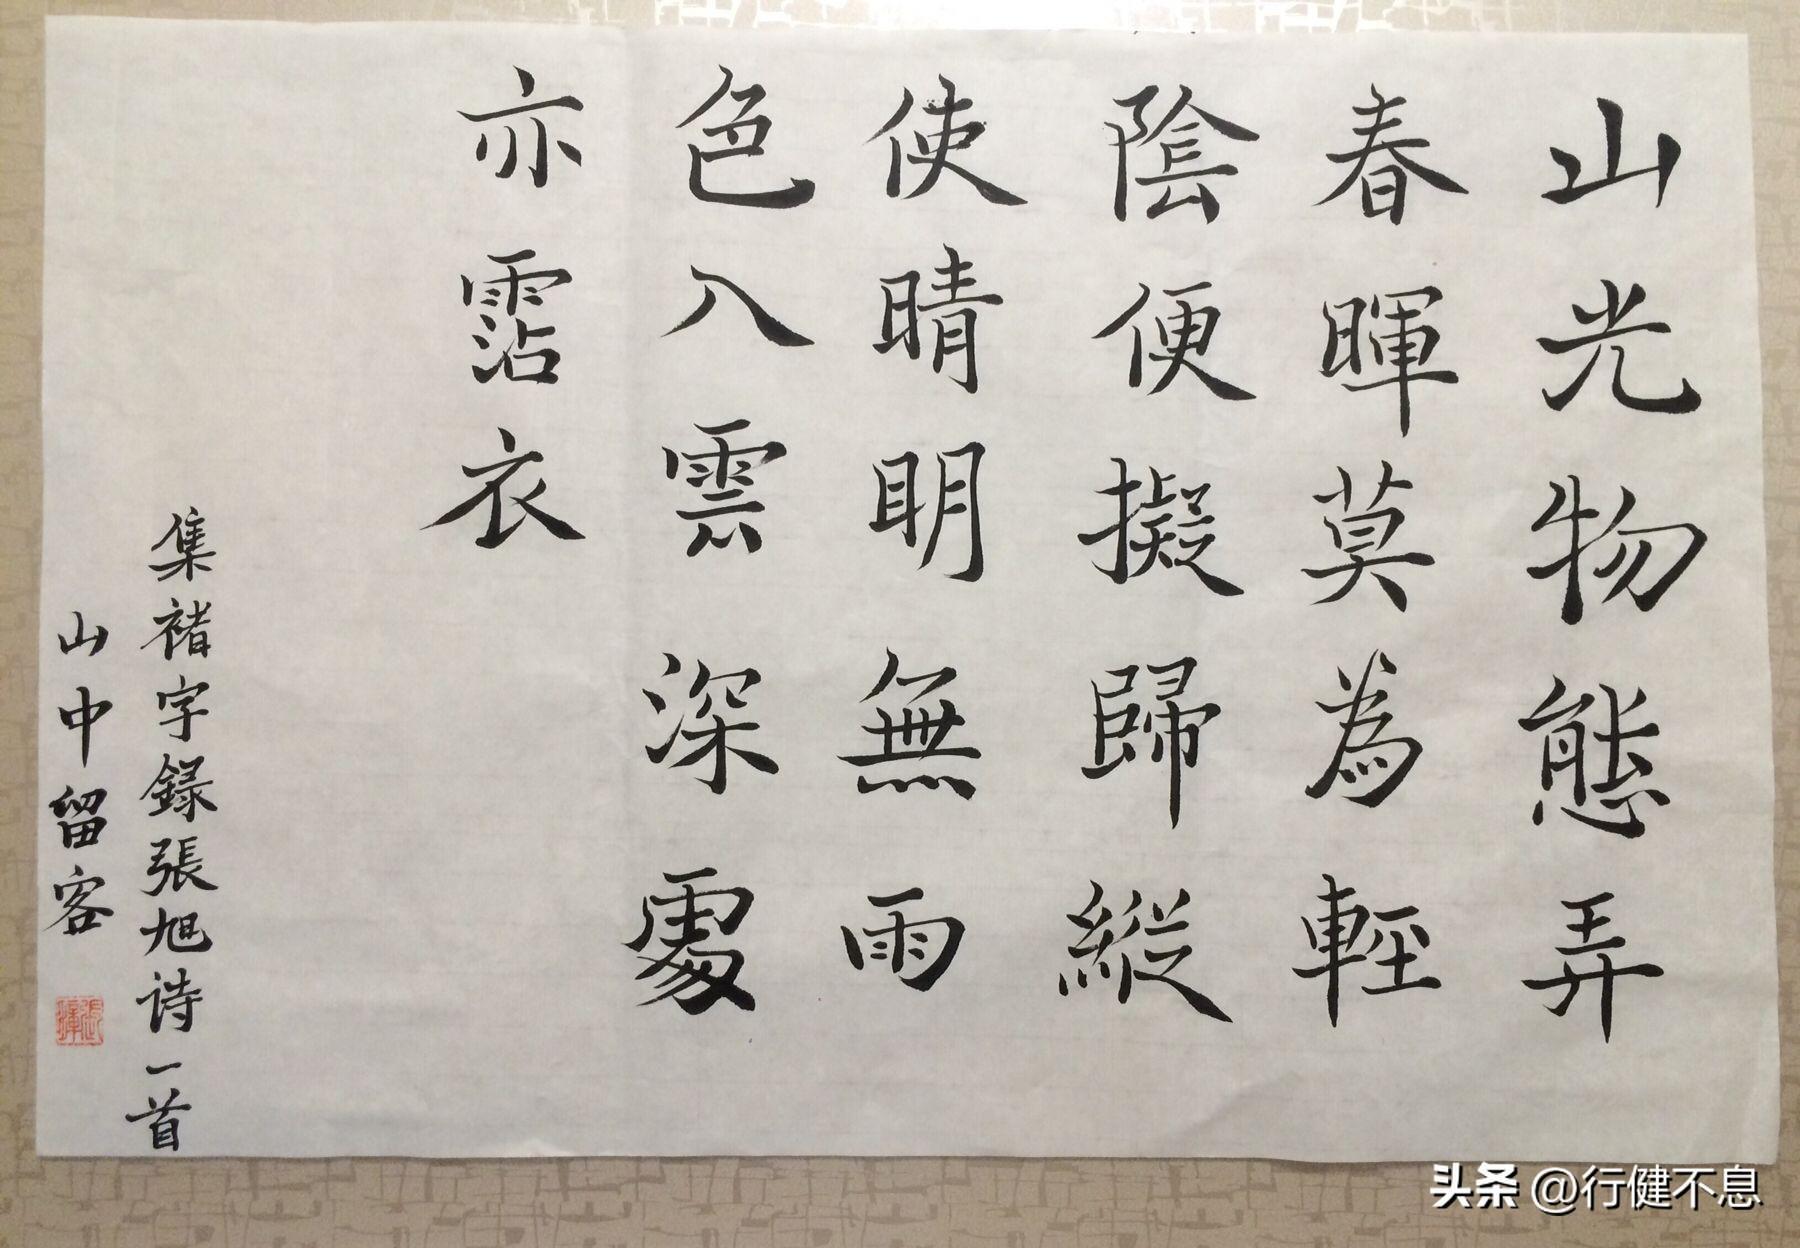 山光物態弄
春暉莫為輕
陰便擬歸縱
使晴明無雨
色入雲深處
亦霑衣
集褚字録張旭诗一首
山中留客
头条 @行健不息